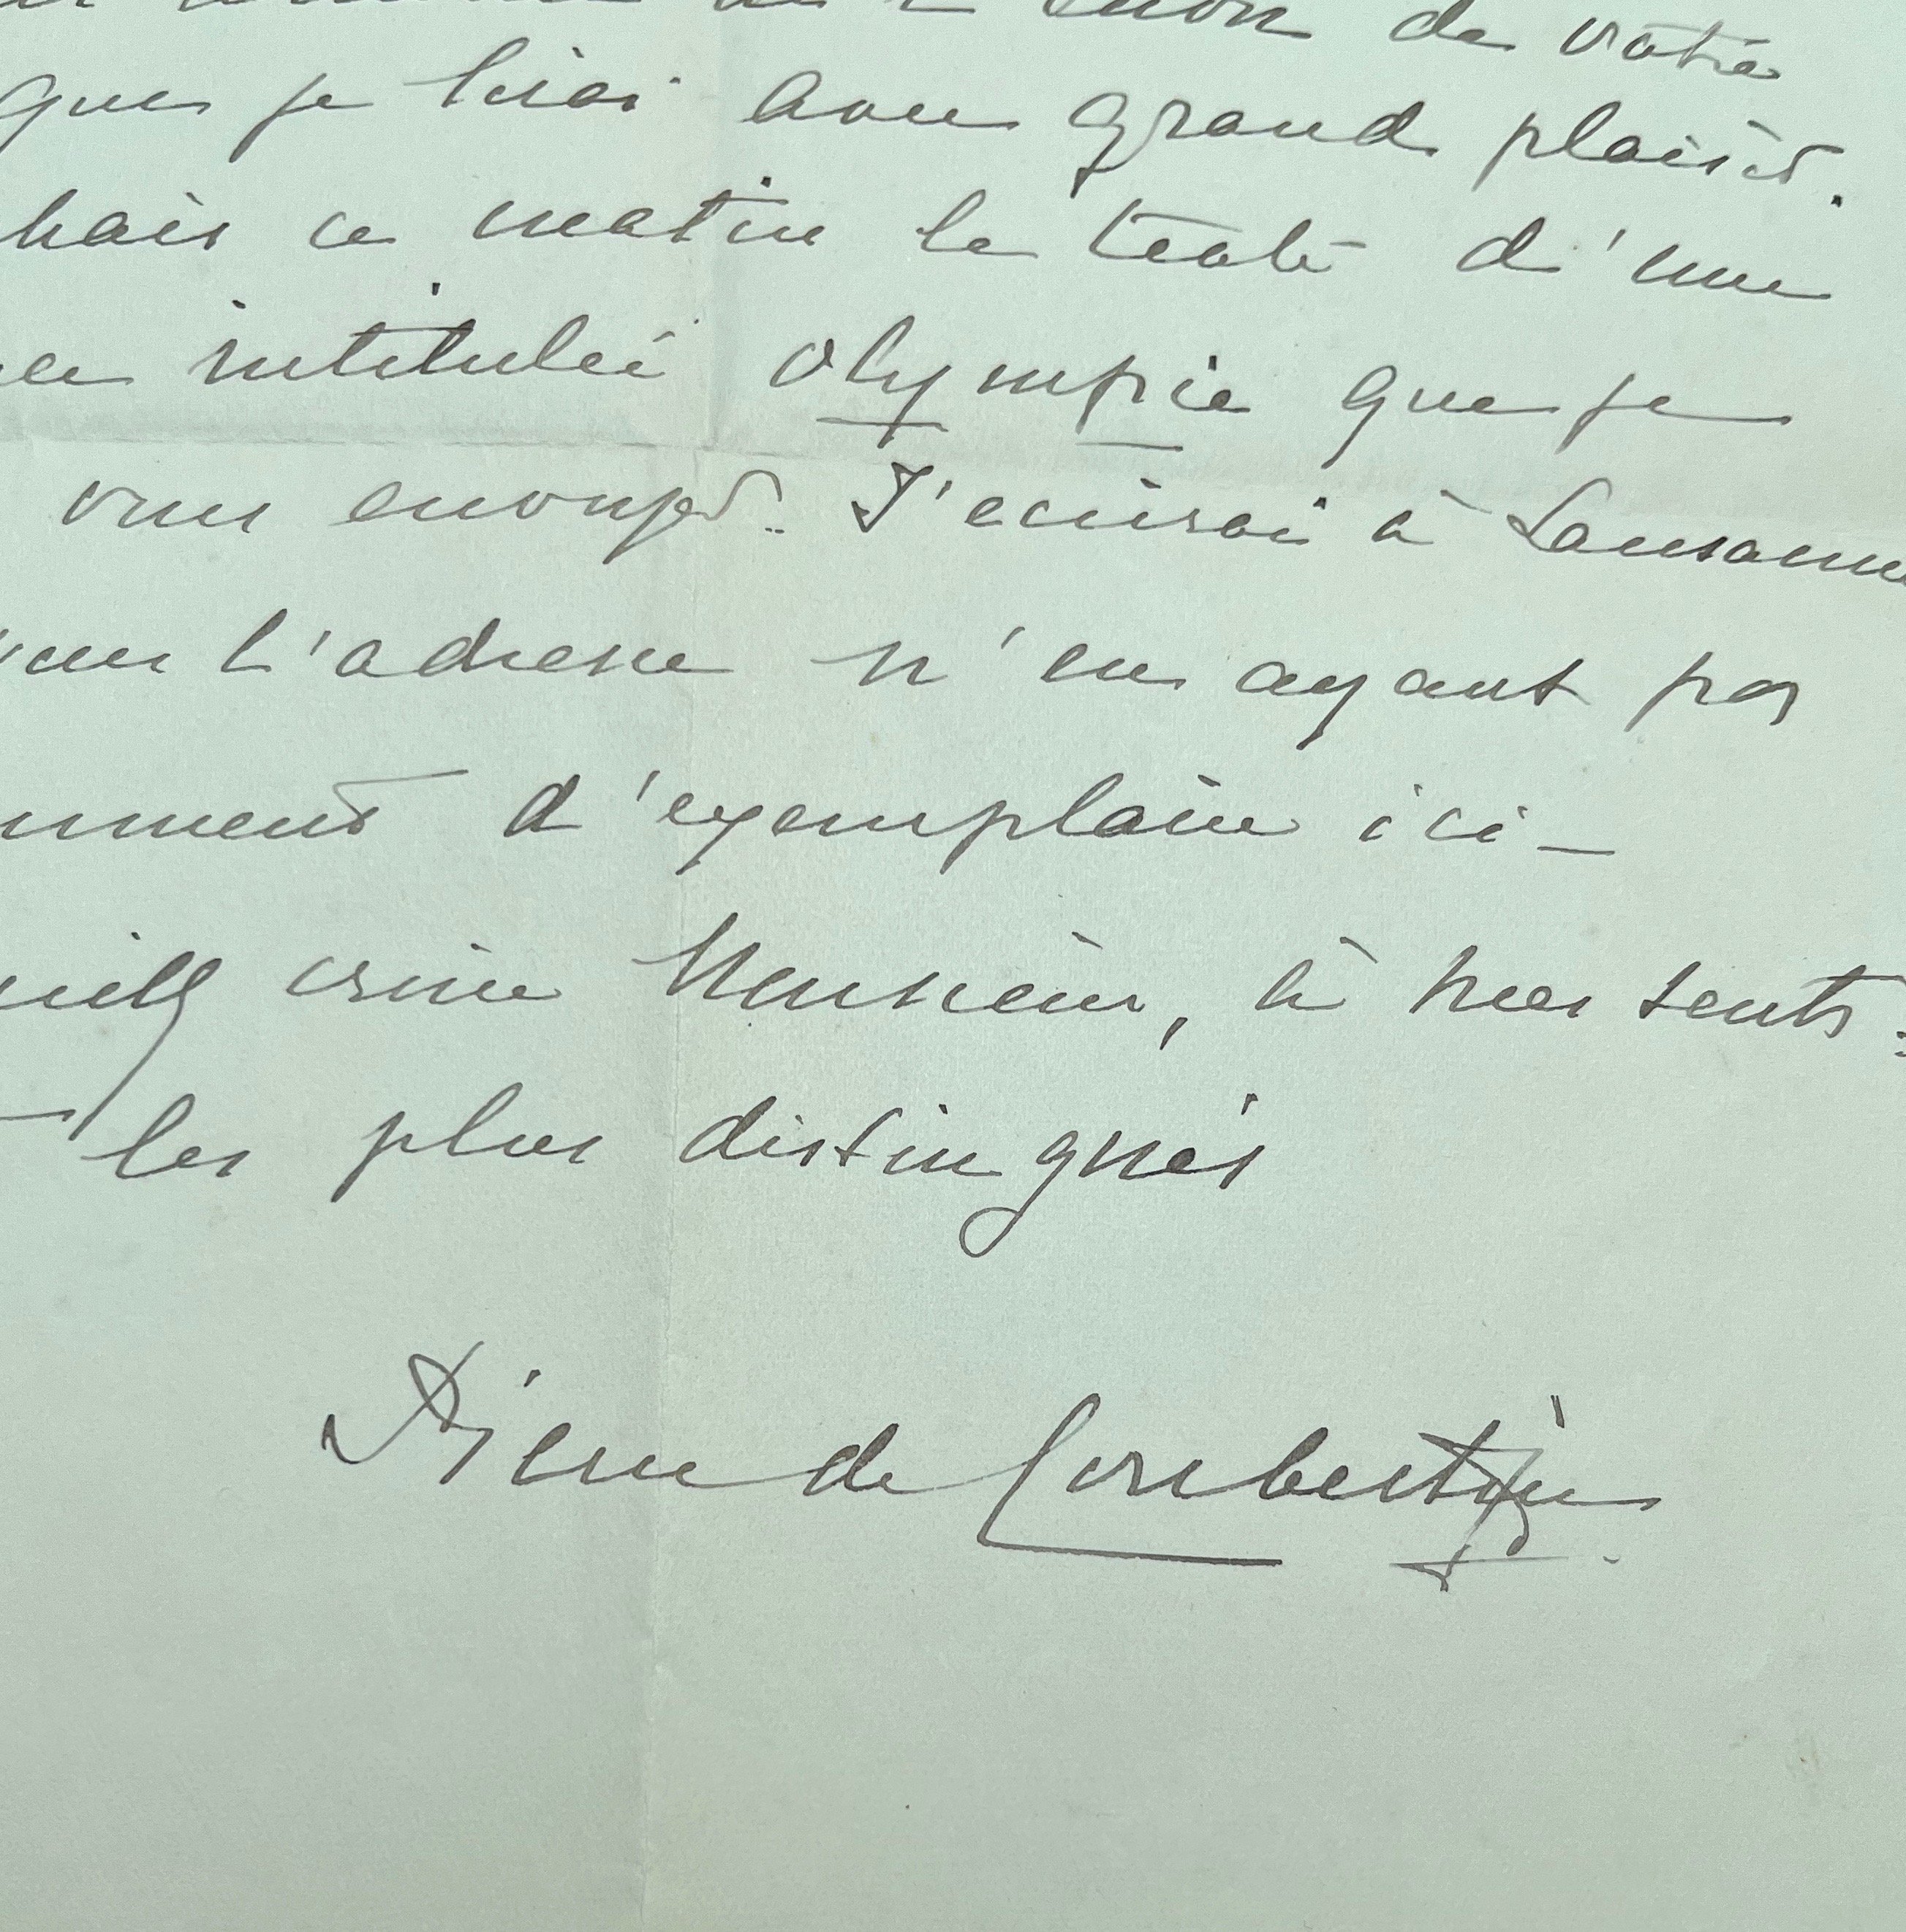 de l'envoi de votre
que je lirai avec grand plaisir.
chais ce matin le texte d'une
intitulée Olympie que je
vous envoyer. J'écrirai à Lausanne
l'adresse n'en ayant pas
d'exemplaire ici _
croire Monsieur, à mes sents
les plus distingués
Pierre de Coubertin